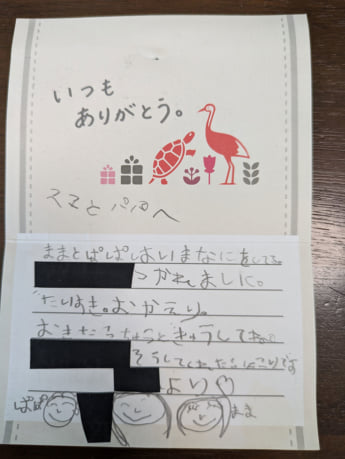 いつも
ありがとう。
ママとパパへ
ままとぱぱはいまなにをしてる
つかれました。
だいすき。おかえり。
おきたらちゅうときゅうしてね。
そうしてくれたらにこりです
より♡
ぱぱ
まま